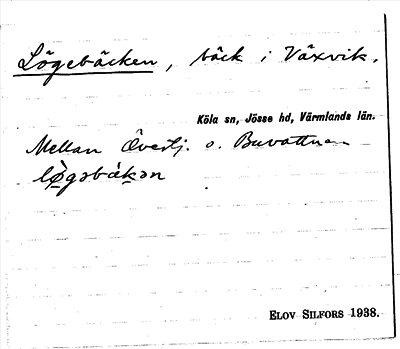 Lögebäcken, bäck i Växvik.
Köla sn, Jösse hd, Värmlands län.
Mellan Övertj. o. Buvattnen
ELOV SILFORS 1938.